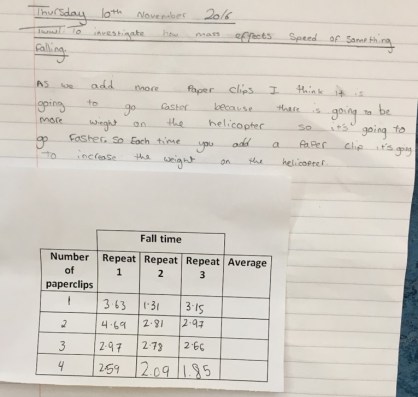 Thursday 10th November 2016
To investigate how mass effects Speed of Something
Falling.
As we add more Paper Clips I think it is
going to go faster because there is going to be
more wieght on the helicopter so it's going to
go Faster. So Each time you add a Paper Clip it's going
to increase the weight on the helicopter.
Fall time
Number of paperclips Repeat 1 Repeat 2 Repeat 3 Average
1 3.63 1.31 3.15
2 4.69 2.81 2.97
3 2.97 2.78 2.66
4 2.59 2.09 1.85